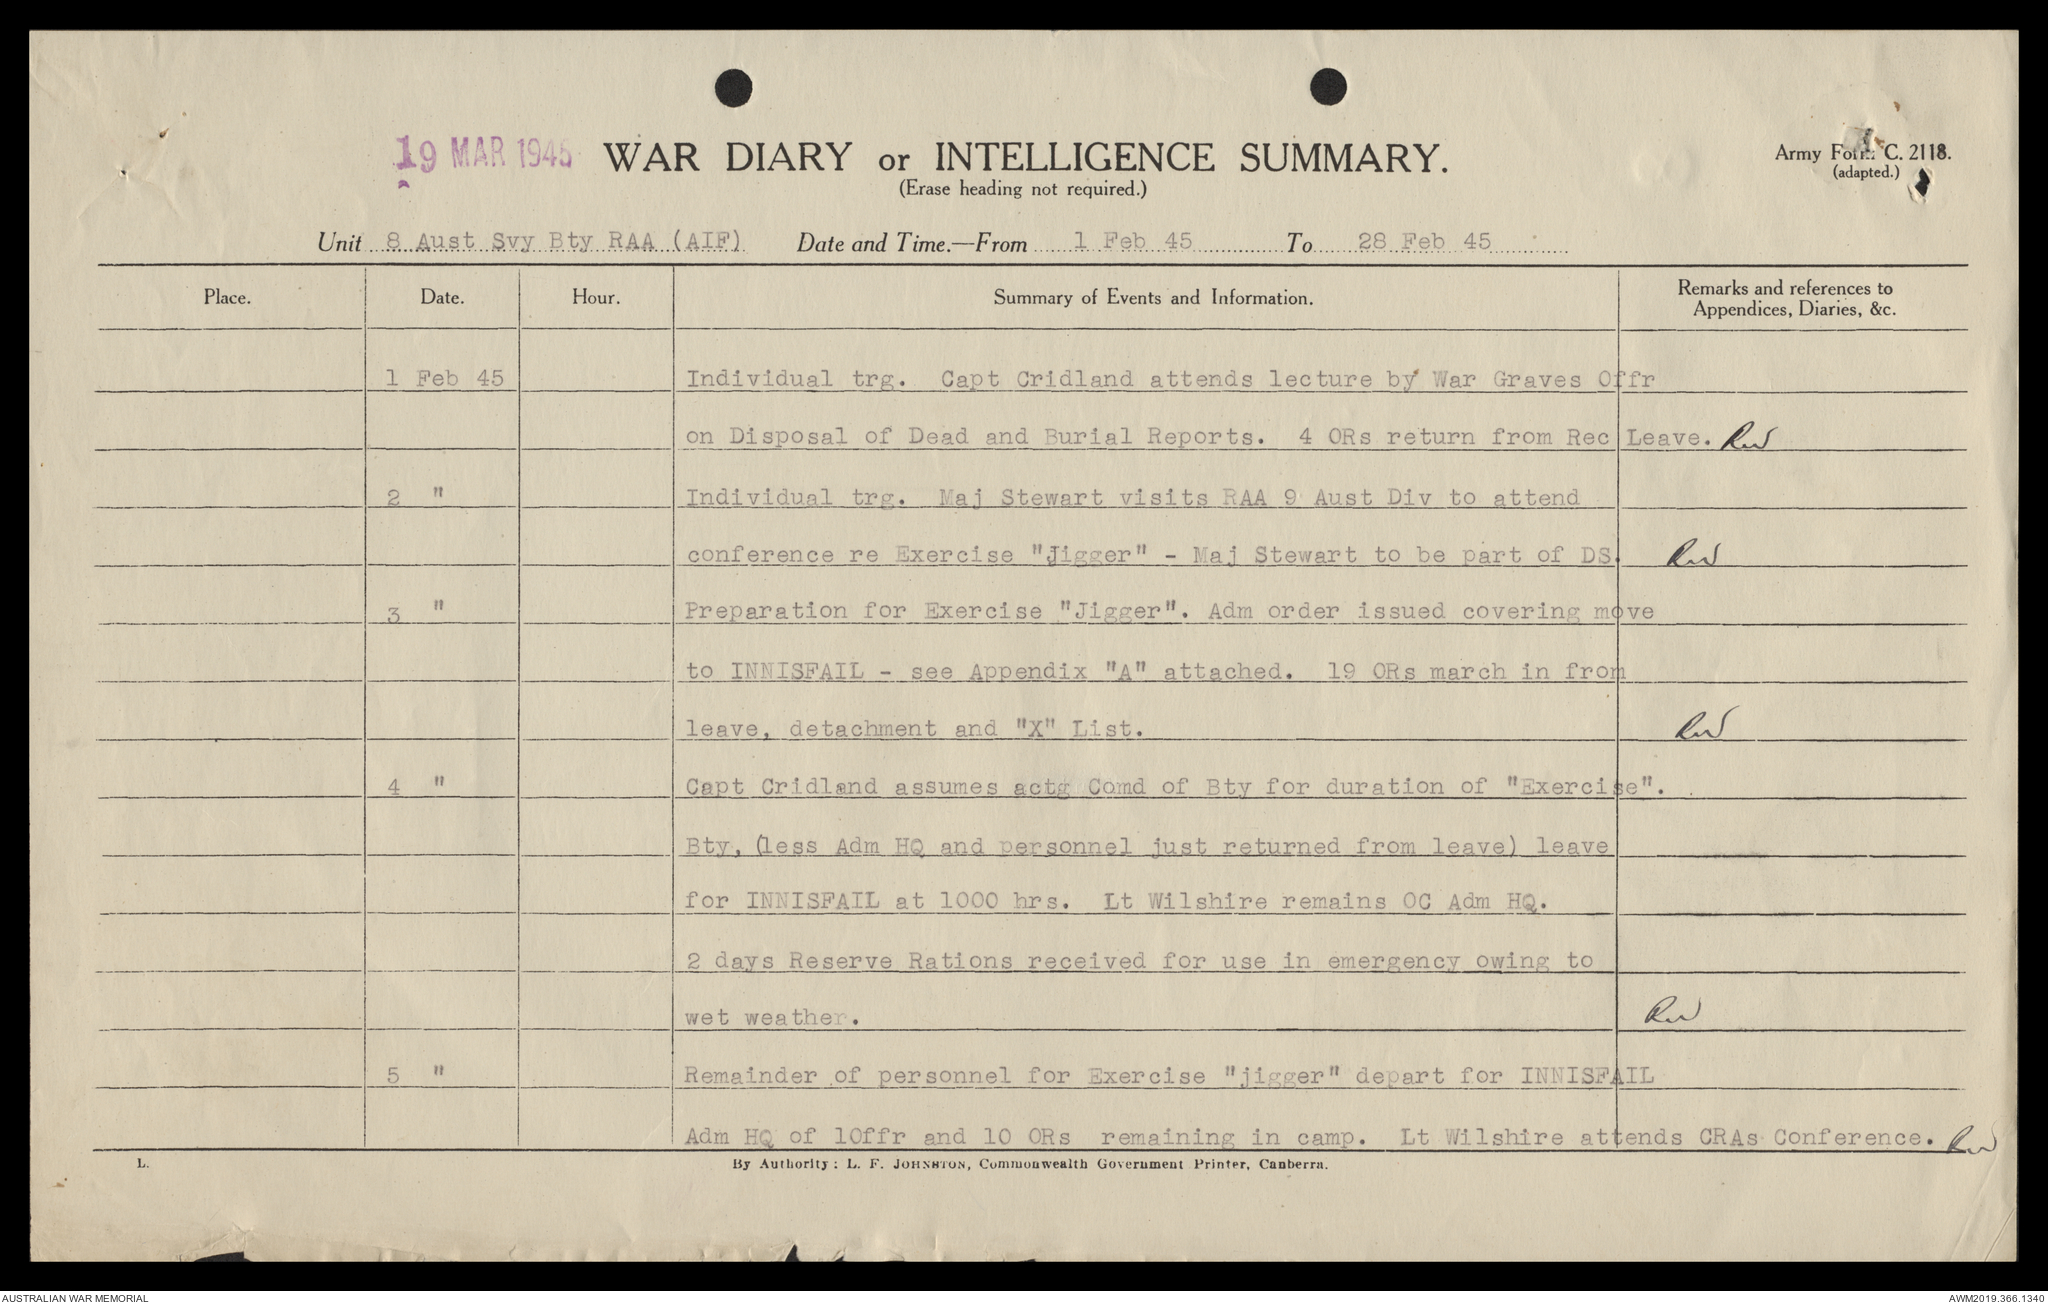 19 MAR 1945 WAR DIARY or INTELLIGENCE SUMMARY.
(Erase heading not required.)
Army Form C. 2118.
(adapted.)
Unit 8 Aust Svy Bty RAA (AIF) Date and Time.—From 1 Feb 45 To 28 Feb 45
Place. Date. Hour. Summary of Events and Information. Remarks and references to
Appendices, Diaries, &c.
1 Feb 45 Individual trg. Capt Cridland attends lecture by War Graves Offr
on Disposal of Dead and Burial Reports. 4 ORs return from Rec Leave.
2 " Individual trg. Maj Stewart visits RAA 9 Aust Div to attend
conference re Exercise "Jigger" - Maj Stewart to be part of DS.
3 " Preparation for Exercise "Jigger". Adm order issued covering move
to INNISFAIL - see Appendix "A" attached. 19 ORs march in from
leave, detachment and "X" List.
4 " Capt Cridland assumes actg Comd of Bty for duration of "Exercise".
Bty, (less Adm HQ and personnel just returned from leave) leave
for INNISFAIL at 1000 hrs. Lt Wilshire remains OC Adm HQ.
2 days Reserve Rations received for use in emergency owing to
wet weather.
5 " Remainder of personnel for Exercise "jigger" depart for INNISFAIL
Adm HQ of 1Offr and 10 ORs remaining in camp. Lt Wilshire attends CRAs Conference.
L. By Authority: L. F. JOHNSTON, Commonwealth Government Printer, Canberra.
AUSTRALIAN WAR MEMORIAL AWM2019.366.1340